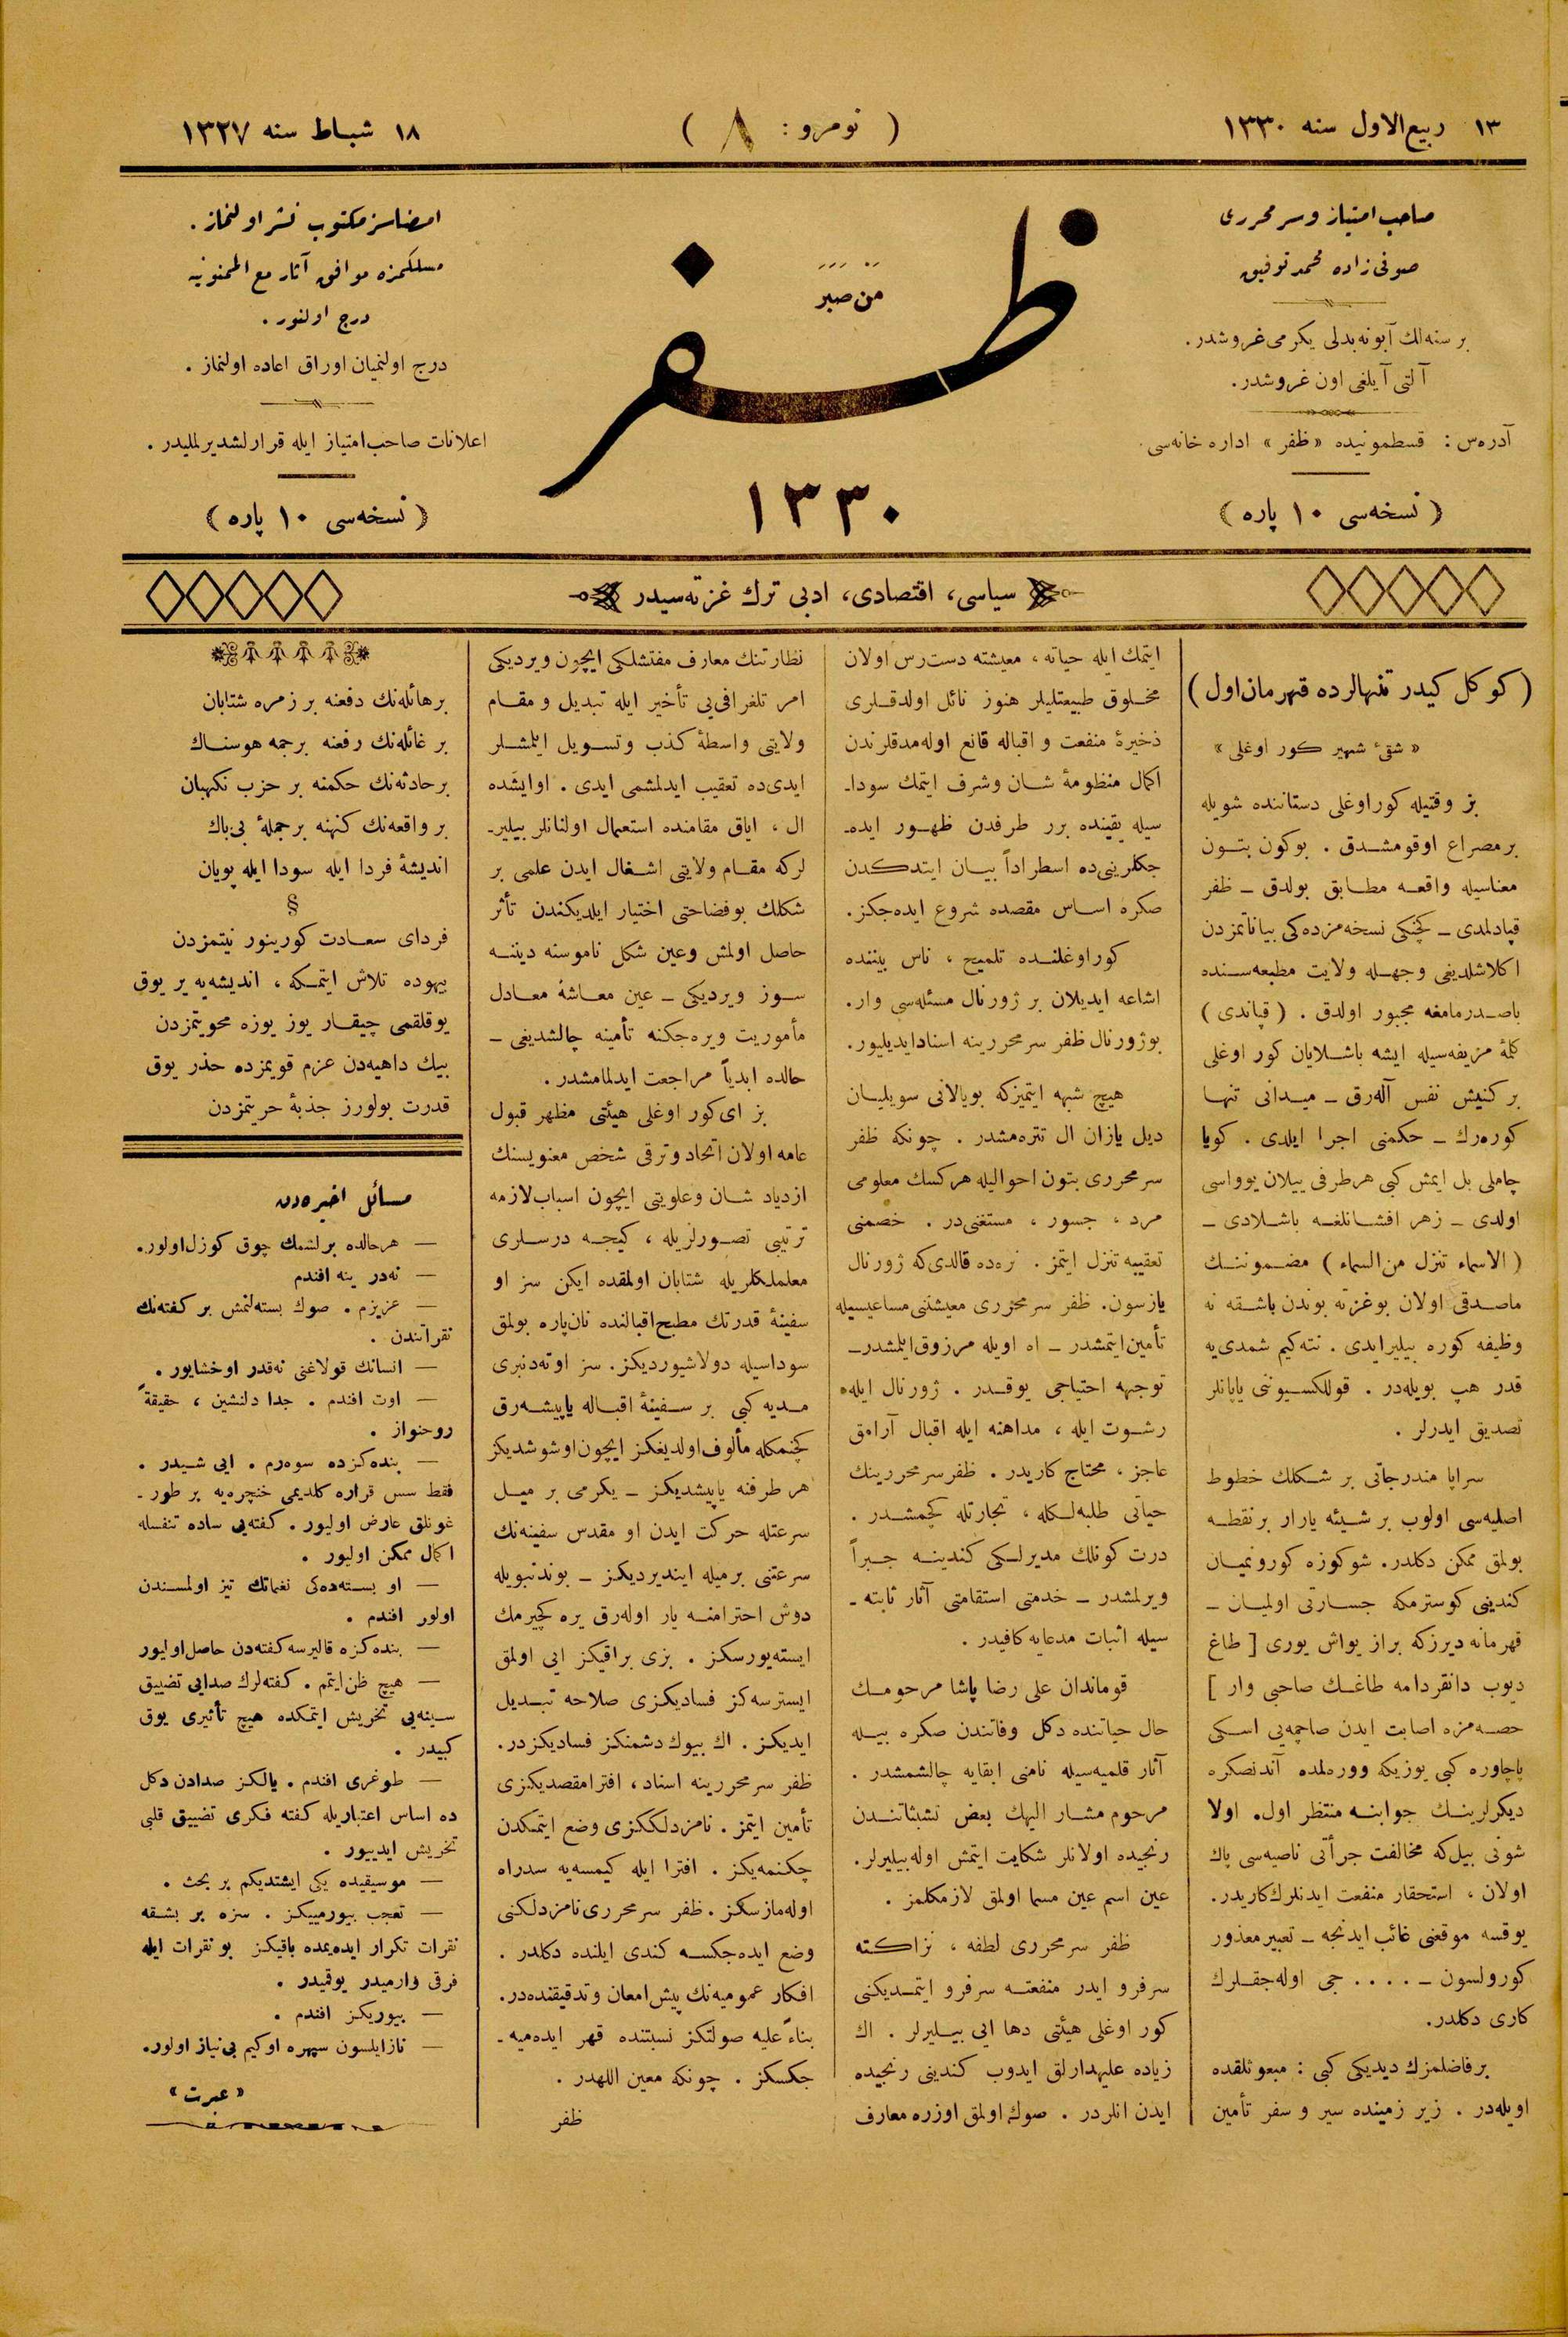 ١٣ ربيع‌الاول سنه ١٣٣٠
( نومرو : ٨ )
١٨ شباط سنه ١٣٢٧
صاحب امتياز و سر محررى
صوفى زاده محمد توفيق
بر سنه‌لك آبونه بدلى يكرمى غروشدر.
آلتى آيلغى اون غروشدر.
آدره‌س : قسطمونيده «ظفر» اداره خانه‌سى.
( نسخه‌سى ١٠ پاره )
من صبر
ظفر
١٣٣٠
امضاسز مكتوب نشر اولنماز .
مسلكمزه موافق آثار مع الممنونيه
درج اولنور .
درج اولنميان اوراق اعاده اولنماز .
اعلانات صاحب امتياز ايله قرارلشديرلمليدر .
( نسخه‌سى ١٠ پاره )
سياسى، اقتصادى، ادبى ترك غزته‌سيدر
( كوكل كيدر تنهالرده قهرمان اول )
« شقئ شهير كور اوغلى »
بز وقتيله كور اوغلى دستاننده شويله
بر مصراع اوقومشدق . بوكون بتون
معناسيله واقعه مطابق بولدق ـ ظفر
قپادلمدى ـ كچنكى نسخه‌مزده‌كى بياناتمزدن
اكلاشلديغى وجهله ولايت مطبعه‌سنده
باصدرمامغه مجبور اولدق . ( قپاندى )
كلمهٔ مزيفه‌سيله ايشه باشلايان كور اوغلى
بر كنيش نفس آله‌رق ـ ميدانى تنها
كوره‌رك ـ حكمنى اجرا ايلدى . كويا
چاملى بل ايمش كبى هر طرفى ييلان يوواسى
اولدى ـ زهر افشانلغه باشلادى ـ
( الاسماء تنزل من السماء ) مضموننك
ماصدقى اولان بو غزته بوندن باشقه نه
وظيفه كوره بيلير ايدى . نته‌كيم شمدى‌يه
قدر هپ بويله‌در . قوللكسيوننى ياپانلر
تصديق ايدرلر .
سراپا مندرجاتى بر شكلك خطوط
اصليه‌سى اولوب بر شيئه يارار بر نقطه
بولمق ممكن دكلدر. شو كوزه كورونميان
كندينى كوسترمكه جسارتى اولميان ـ
قهرمانه ديرزكه براز يواش يورى [ طاغ
ديوب دانقردامه طاغك صاحبى وار ]
حصه‌مزه اصابت ايدن صاچمه‌يى اسكى
پاچاوره كبى يوزيكه وورەلمده آندنصكره
ديكرلرينك جوابنه منتظر اول. اولا
شونى بيل‌كه مخالفت جرأتى ناصيه‌سى پاك
اولان ، استحقار منفعت ايدنلرك كاريدر.
يوقسه موقعنى غائب ايدنجه ـ تعبير معذور
كورولسون ـ .... جى اوله‌جقلرك
كارى دكلدر.
بر فاضلمزك ديديكى كبى : مبعوثلقده
اويله‌در . زير زمينده سير و سفر تأمين
ايتمك ايله حياته ، معيشته دست‌رس اولان
مخلوق طبيعتليلر هنوز نائل اولدقلرى
ذخيرهٔ منفعت و اقباله قانع اوله‌مدقلرندن
اكمال منظومهٔ شان و شرف ايتمك سودا-
سيله يقينده برر طرفدن ظهور ايده-
جكلرينى‌ده اسطراداً بيان ايتدكدن
صكره اساس مقصده شروع ايده‌جكز.
كور اوغلنده تلميح ، ناس بيننده
اشاعه ايديلان بر ژورنال مسئله‌سى وار.
بو ژورنال ظفر سر محررينه اسناد ايديليور.
هيچ شبهه ايتميزكه بو يالانى سويليان
ديل يازان ال تتره‌مشدر . چونكه ظفر
سر محررى بتون احواليله هركسك معلومى
مرد ، جسور ، مستغنى‌در . خصمنى
تعقيبه تنزل ايتمز. نره‌ده قالدى‌كه ژورنال
يازسون. ظفر سر محررى معيشتنى مساعيسيله
تأمين ايتمشدر ـ اه اويله مرزوق ايلمشدر ـ
توجهه احتياجى يوقدر . ژورنال ايله
رشوت ايله ، مداهنه ايله اقبال آرامق
عاجز ، محتاج كاريدر . ظفر سر محررينك
حياتى طلبه‌لكله ، تجارتله كچمشدر .
درت كونلك مديرلكى كندينه جبراً
ويرلمشدر ـ خدمتى استقامتى آثار ثابته ـ
سيله اثبات مدعايه كافيدر .
قوماندان على رضا پاشا مرحومك
حال حياتنده دكل وفاتندن صكره بيله
آثار قلميه‌سيله نامنى ابقايه چالشمشدر .
مرحوم مشار اليهك بعض تشبثاتندن
رنجيده اولانلر شكايت ايتمش اوله بيليرلر.
عين اسم عين مسما اولمق لازمكلمز .
ظفر سر محررى لطفه ، نزاكته
سرفرو ايدر منفعته سرفرو ايتمديكنى
كور اوغلى هيئتى دها ايى بيليرلر . اك
زياده عليهدارلق ايدوب كندينى رنجيده
ايدن انلردر . صوك اولمق اوزره معارف
نظارتنك معارف مفتشلكى ايچون ويرديكى
امر تلغرافى‌يى تأخير ايله تبديل و مقام
ولايتى واسطهٔ كذب و تسويل ايلمشلر
ايدى‌ده تعقيب ايدلمشمى ايدى . او ايشده
ال ، اياق مقامنده استعمال اولنانلر بيلير-
لركه مقام ولايتى اشغال ايدن علمى بر
شكلك بو فضاحتى اختيار ايلديكندن تأثر
حاصل اولمش وعين شكل ناموسنه ديننه
سوز ويرديكى ـ عين معاشهٔ معادل
مأموريت ويره‌جكنه تأمينه چالشديغى ـ
حالده ابدياً مراجعت ايدلمامشدر .
بز اى كور اوغلى هيئتى مظهر قبول
عامه اولان اتحاد و ترقى شخص معنويسنك
ازدياد شان وعلويتى ايچون اسباب لازمه
ترتيبى تصورلريله ، كيجه درسلرى
معلملكلريله شتابان اولمقده ايكن سز او
سفينهٔ قدرتك مطبح اقبالنده نان‌پاره بولمق
سوداسيله دولاشيورديكز. سز اوته‌دنبرى
مديه كبى بر سفينهٔ اقباله ياپيشه‌رق
كچنمكله مألوف اولديغكز ايچون اوشوشديكز
هر طرفنه ياپيشديكز ـ يكرمى بر ميل
سرعتله حركت ايدن او مقدس سفينه‌نك
سرعتنى بر ميله اينديرديكز ـ بوندنبويله
دوش احترامنه يار اوله‌رق يره كچيرمك
ايسته‌يورسكز . بزى براقيكز ايى اولمق
ايسترسه‌كز فساديكزى صلاحه تبديل
ايديكز . اك بيوك دشمنكز فساديكزدر.
ظفر سر محررينه اسناد ، افترا مقصديكزى
تأمين ايتمز . نامزدلككزى وضع ايتمكدن
چكنمه‌يكز . افترا ايله كيمسه‌يه سدراه
اوله‌مازسكز . ظفر سر محررى نامزدلكنى
وضع ايده‌جكسه كندى ايلنده دكلدر .
افكار عموميه‌نك پيش امعان و تدقيقنده‌در.
بناءً عليه صولتكز نسبتنده قهر ايده‌ميه-
جكسكز . چونكه معين اللهدر .
ظفر
بر هائله‌نك دفعنه بر زمره شتابان
بر غائله‌نك رفعنه برجمه هوسناك
بر حادثه‌نك حكمنه بر حزب نكهبان
بر واقعه‌نك كنهنه بر جملهٔ بى‌باك
انديشهٔ فردا ايله سودا ايله پويان
§
فرداى سعادت كورينور نيتمزدن
بيهوده تلاش ايتمكه ، انديشه‌يه ير يوق
يوقلقمى چيقار يوز يوزه محويتمزدن
بيك داهيه‌دن عزم قويمزده حذر يوق
قدرت بولورز جذبهٔ حريتمزدن
مسائل اخيره‌دن
— هر حالده برلشمك چوق كوزل اولور.
— نه‌در ينه افندم
— عزيزم . صوك بسته‌لنمش بر كفته‌نك
نقراتندن .
— انسانك قولاغنى نه‌قدر اوخشايور .
— اوت افندم . جدا دلنشين ، حقيقةً
روحنواز .
— بنده‌كزده سوه‌رم . ايى شيدر .
فقط سس قراره كلديمى خنچره‌يه بر طور -
غونلق عارض اوليور . كفته‌يى ساده تنفسله
اكمال ممكن اوليور .
— او بسته‌ده‌كى نغماتك تيز اولمسندن
اولور افندم .
— بنده‌كزه قاليرسه كفته‌دن حاصل اوليور
— هيچ ظن ايتمم . كفته‌لرك صدايى تضييق
سينه‌يى تخريش ايتمكده هيچ تأثيرى يوق
كبيدر .
— طوغرى افندم . يالكز صدادن دكل
ده اساس اعتباريله كفته فكرى تضييق قلبى
تخريش ايدييور .
— موسيقيده يكى ايشتديكم بر بحث .
— تعجب بيورمييكز . سزه بر بشقه
نقرات تكرار ايده‌يمده باقيكز بو نقرات ايله
فرقى وارميدر يوقميدر .
— بيوريكز افندم .
— ناز ايلسون سپهره اوكيم بى نياز اولور.
« عبرت »